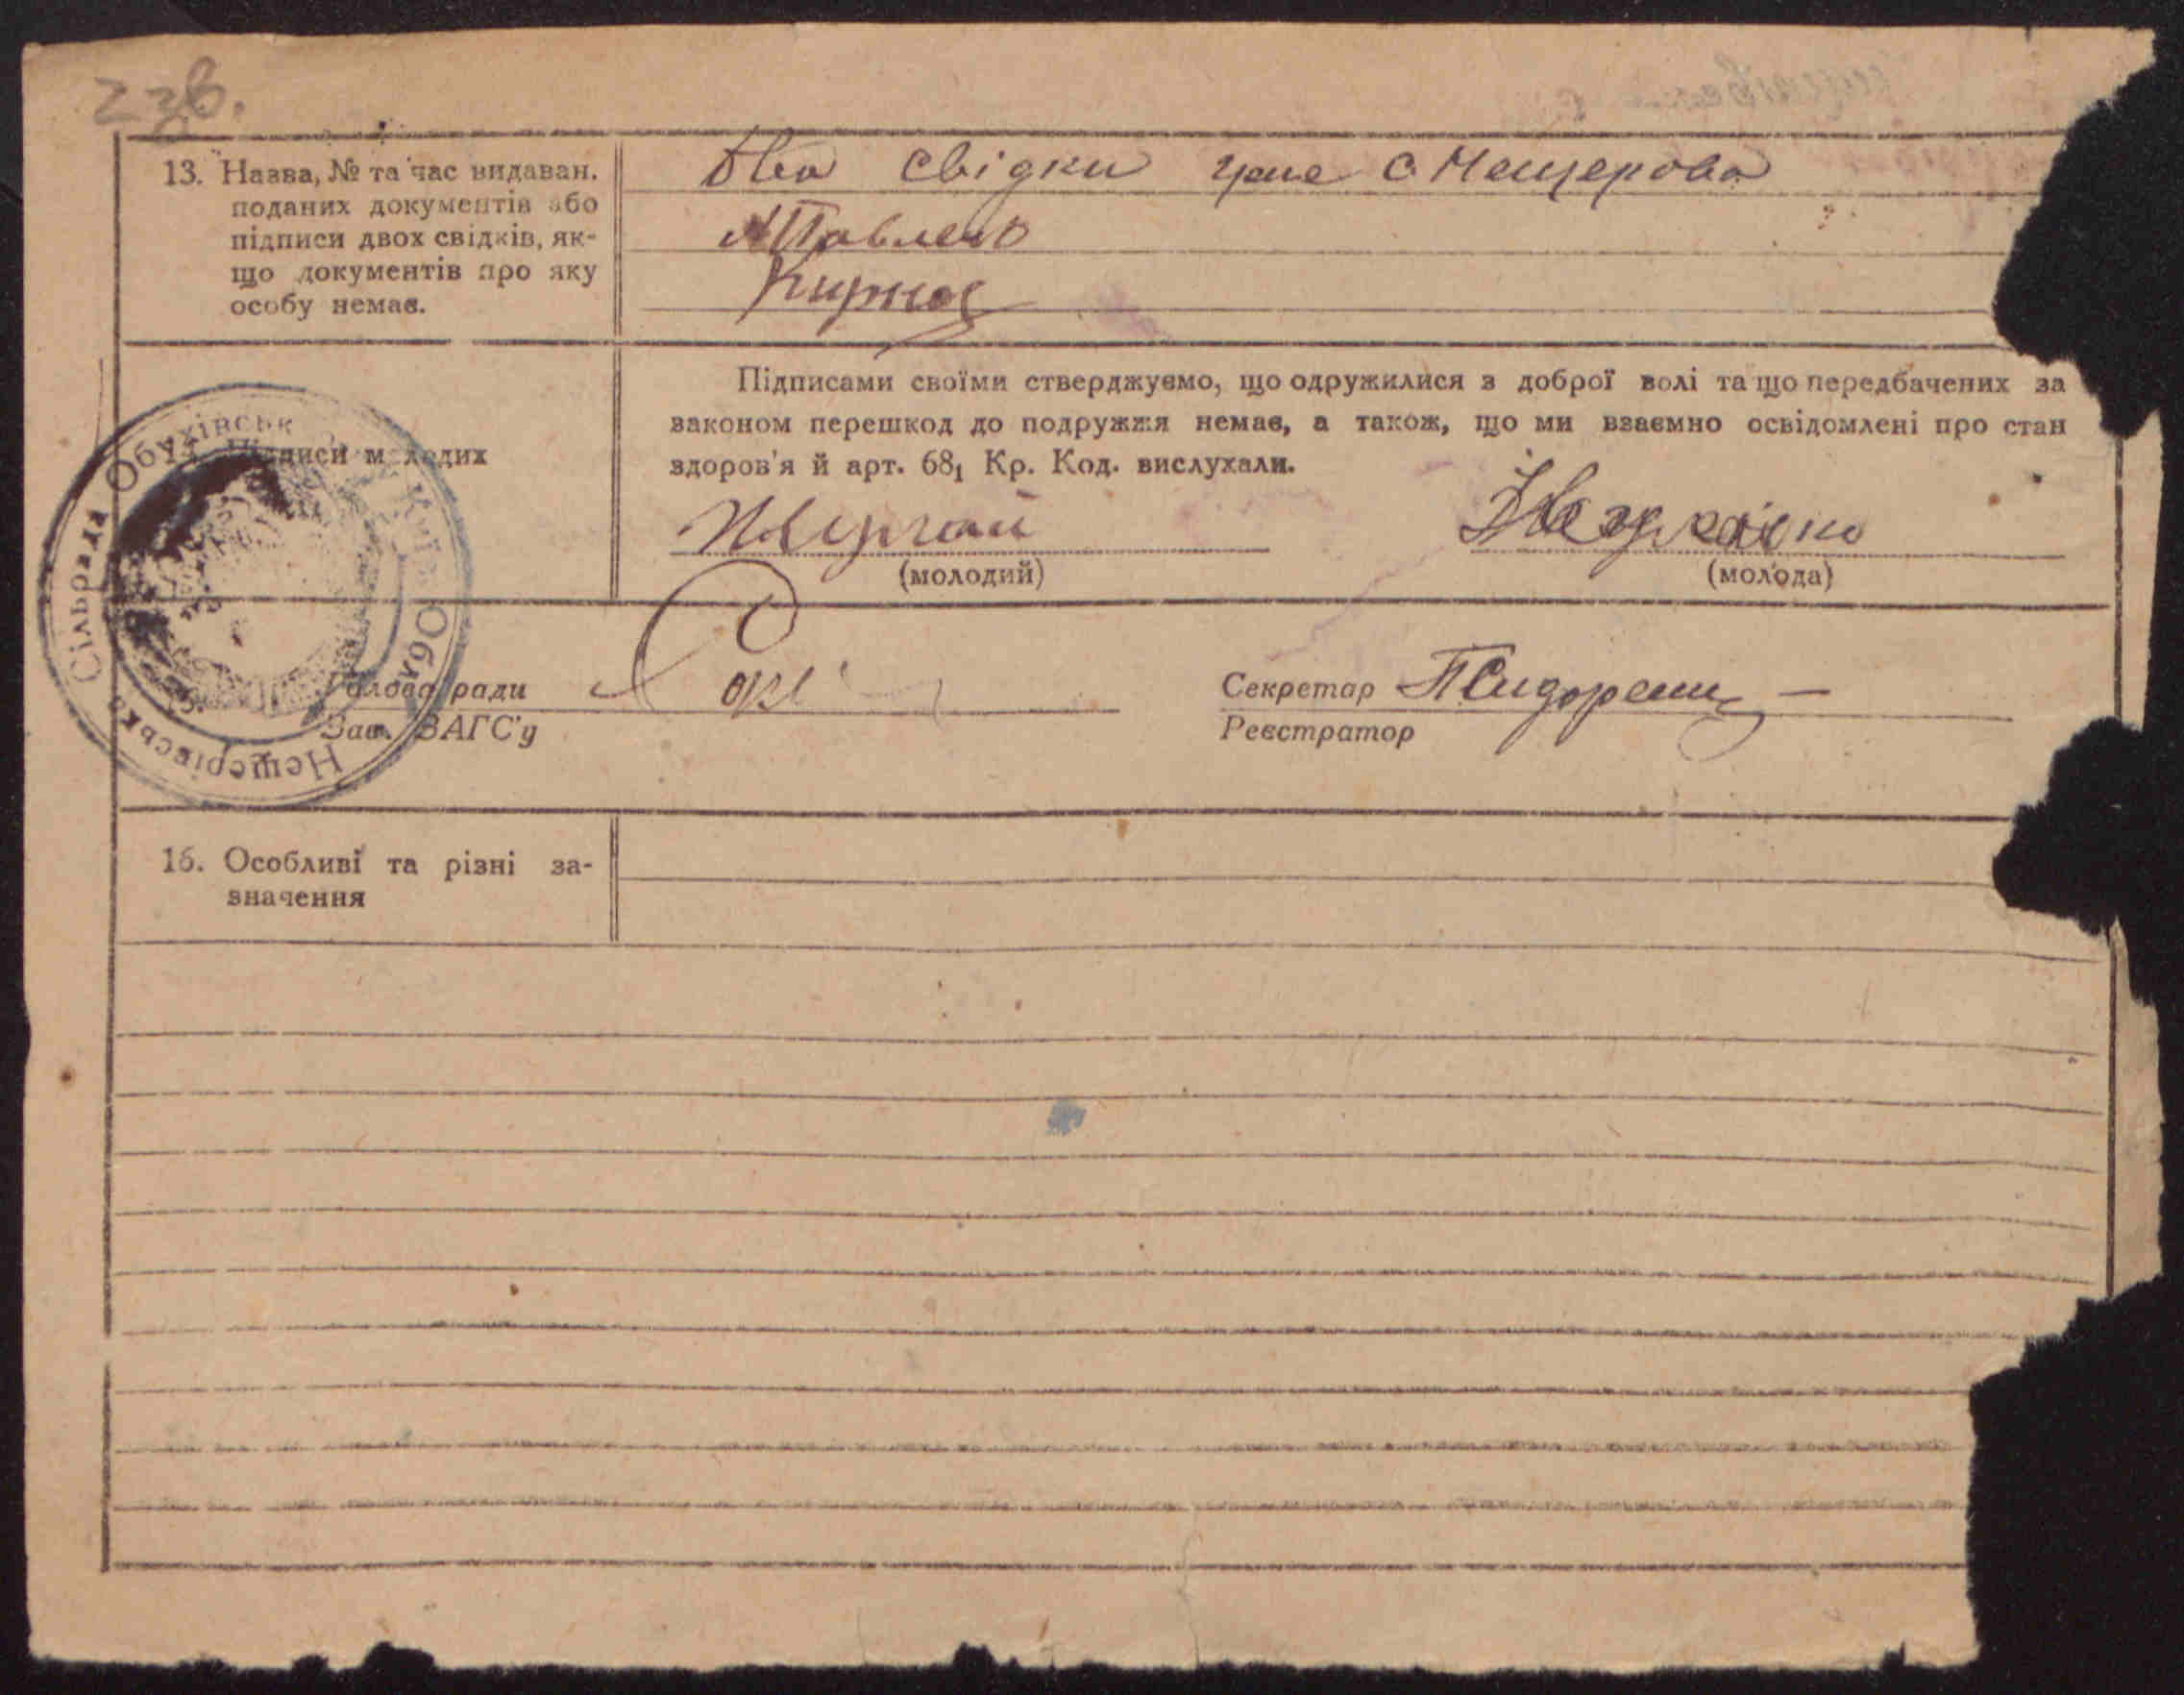 23в.
13. Назва, № та час видаван. поданих документів або підписи двох свідків, як-що документів про яку особу немає.
Два свідки гр-не с. Нещерова
Павлено
Кирнос
Підписами своїми стверджуємо, що одружилися з доброї волі та що передбачених за
законом перешкод до подружжя немає, а також, що ми взаємно освідомлені про стан
здоров'я й арт. 68₁ Кр. Код. вислухали.
Підписи молодих
(молодий)
(молода)
Голова ради
Зав. ЗАГС'у
Секретар ПСидорени
Реєстратор
Нещерівська Сільрада Обухівськ
16. Особливі та різні за-
значення